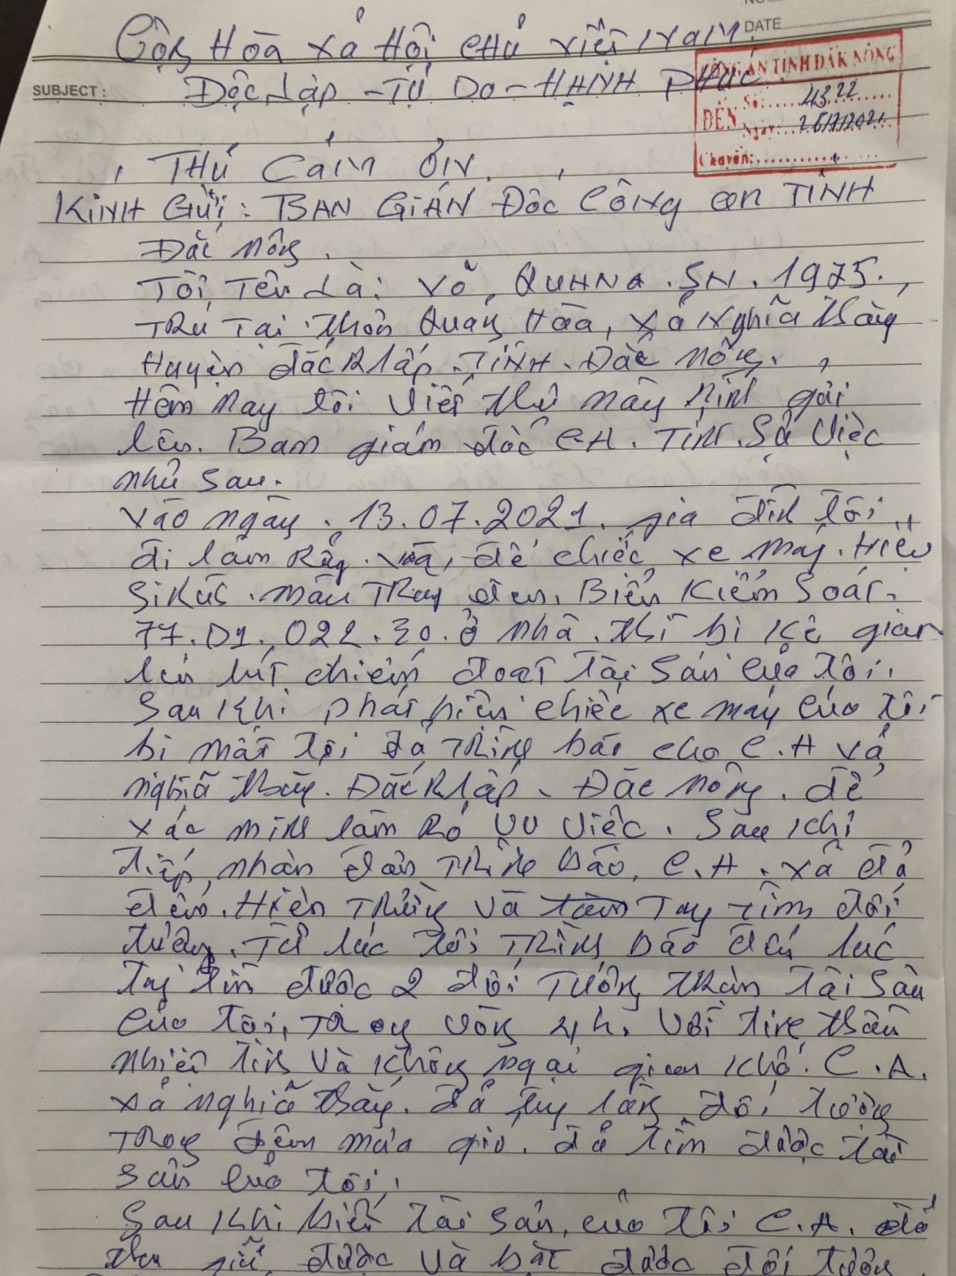 DATE
Cộng Hòa xả Hội chủ Việt Nam
SUBJECT :
Độc Lập - Tự Do - HẠNH PHÚC
CÔNG AN TỈNH ĐĂK NÔNG
ĐẾN Số: 4322
Ngày: 26/7/2021
Chuyển:
THƯ CẢM ƠN
Kính Gửi: BAN GIÁM Đốc Công an TỈNH
Đắc Nông.
Tôi, Tên Là: Võ, QUANG. SN. 1975.
Trú Tại thôn Quảng Hòa, xả Nghĩa thắng
Huyện đắc Rlấp. TỈNH. Đắc Nông.
Hôm Nay tôi Viết thư này kính gửi
lên. Ban giám đốc C.A. Tỉnh. Sự Việc
như sau.
Vào ngày. 13.07.2021. gia đình tôi
đi làm Rẫy. và, để chiếc, xe máy. Hiệu
SiRúc. màu Trắng đen, Biển Kiểm Soát.
77.D1.022.30. ở nhà. thì bị Kẻ gian
lén lút chiếm đoạt Tài Sản của tôi.
Sau Khi phát hiện chiếc xe máy của tôi
bị mất tôi đả Trình báo cho C.A xả
nghĩa thắng. Đắc Rlấp. Đắc Nông. để
xác minh làm Rỏ vụ việc. Sau Khi
tiếp nhận đơn Trình báo, C.A. xả đả
đến. Hiện Trường Và Truy tìm đối
tượng. Từ lúc tôi Trình báo đến lúc
truy tìm được 2 đối Tượng Trộm Tài Sản
của tôi, Trong Vòng 4h. Với tinh thần
nhiệt tình Và Không ngại gian Khổ. C.A.
xả nghĩa thắng. đả truy lùng đối tượng
Trong đêm mưa gió. đả tìm được tài
sản của tôi.
Sau Khi biết Tài Sản của tôi C.A. đả
thu giữ được Và bắt được đối tượng